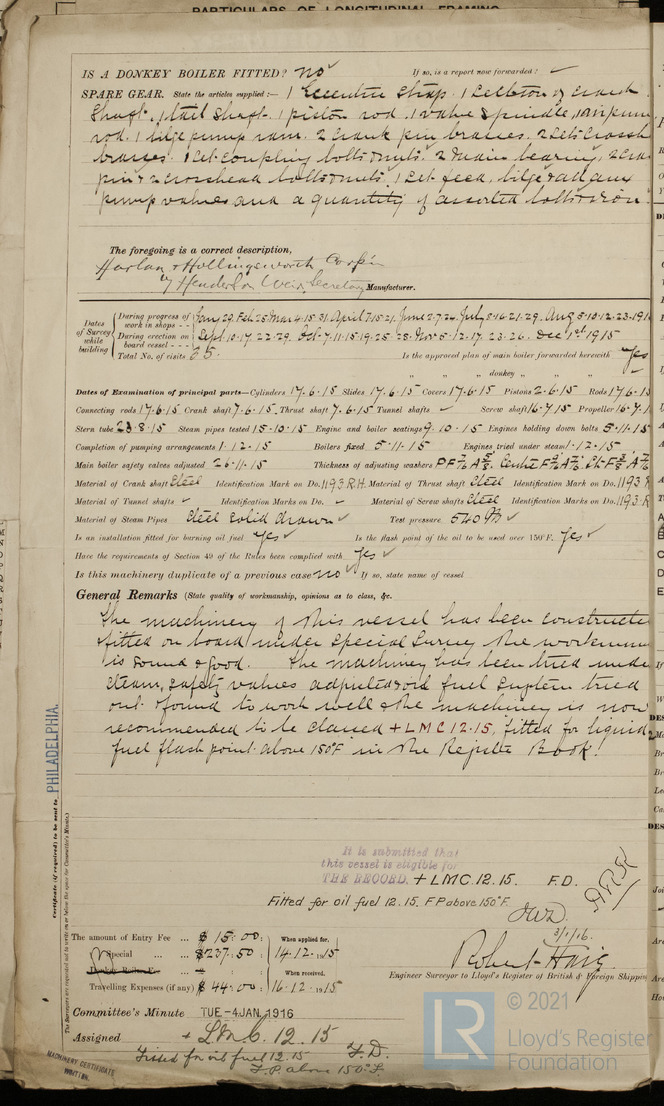 PARTICULARS OF LONGITUDINAL FRAMING
IS A DONKEY BOILER FITTED? no ✓ If so, is a report now forwarded? ✓
SPARE GEAR. State the articles supplied:— 1 Eccentric Strap. 1 Section of Crank
Shaft. 1 tail Shaft. 1 piston rod. 1 valve spindle, 1 air pump
rod. 1 bilge pump ram. 2 crank pin brasses. 2 Sets Crossh
brasses. 1 Set Coupling bolts & nuts. 2 Main bearing, 2 cra
pin & 2 crosshead bolts & nuts. 1 Set feed, bilge & air
pump valves and a quantity of assorted bolts & iron
The foregoing is a correct description,
Harlan & Hollingsworth Corp'n
by Henderson Weir, Secretary Manufacturer.
Dates of Survey while building
During progress of work in shops - - Jany 29. Feb 25. Mar 4.15.31. April 7.15.21. June 2.7.24. July 8.16.21.29. Aug 5.10.12.23.19
During erection on board vessel - - - Sept. 10.17.22.29. Oct. 7.11.15.19.25.28. Nov 5.12.17.23.26. Dec 1st 1915
Total No. of visits 35. Is the approved plan of main boiler forwarded herewith Yes
" " " donkey " " ✓
Dates of Examination of principal parts—Cylinders 17.6.15 Slides 17.6.15 Covers 17.6.15 Pistons 2.6.15 Rods 17.6.15
Connecting rods 17.6.15 Crank shaft 7.6.15. Thrust shaft 7.6.15 Tunnel shafts ✓ Screw shaft 16.7.15 Propeller 16.7.1
Stern tube 23.8.15 Steam pipes tested 15.10.15 Engine and boiler seatings 9.10.15 Engines holding down bolts 5.11.15
Completion of pumping arrangements 1.12.15 Boilers fixed 5.11.15 Engines tried under steam 1.12.15
Main boiler safety valves adjusted 26.11.15 Thickness of adjusting washers
Material of Crank shaft Steel Identification Mark on Do. 1193 R.H. Material of Thrust shaft Steel Identification Mark on Do. 1193 R
Material of Tunnel shafts ✓ Identification Marks on Do. ✓ Material of Screw shafts Steel Identification Marks on Do. 1193 R
Material of Steam Pipes Steel solid drawn ✓ Test pressure 540 lbs ✓
Is an installation fitted for burning oil fuel Yes ✓ Is the flash point of the oil to be used over 150°F. Yes ✓
Have the requirements of Section 49 of the Rules been complied with Yes ✓
Is this machinery duplicate of a previous case no ✓ If so, state name of vessel
General Remarks (State quality of workmanship, opinions as to class, &c.
The machinery of this vessel has been constructe
& fitted on board under Special Survey the workman
is sound & good. The machinery has been tried unde
steam, safety valves adjusted & oil fuel system tried
out & found to work well & the machinery is now
recommended to be classed + LMC 12.15, fitted for liquid
fuel flash point above 150°F in the Register Book.
Certificate (if required) to be sent to PHILADELPHIA.
(The Surveyors are requested not to write on or below the space for Committee's Minute.)
It is submitted that
this vessel is eligible for
THE RECORD. + LMC. 12.15. F.D.
Fitted for oil fuel 12.15. F.P. above 150°F.
3/1/16.
The amount of Entry Fee ... $ 15.00 : When applied for,
Special ... $237.50 : 14.12.1915
Donkey Boiler Fee ... : When received,
Travelling Expenses (if any) $ 44.00 : 16.12.1915
Robert Haig
Engineer Surveyor to Lloyd's Register of British & Foreign Shipping
Committee's Minute TUE - 4 JAN. 1916
Assigned + L.M.C. 12.15
Fitted for oil fuel 12.15 F.D.
F.P. above 150°F.
MACHINERY CERTIFICATE
WRITTEN.
LR © 2021
Lloyd's Register
Foundation